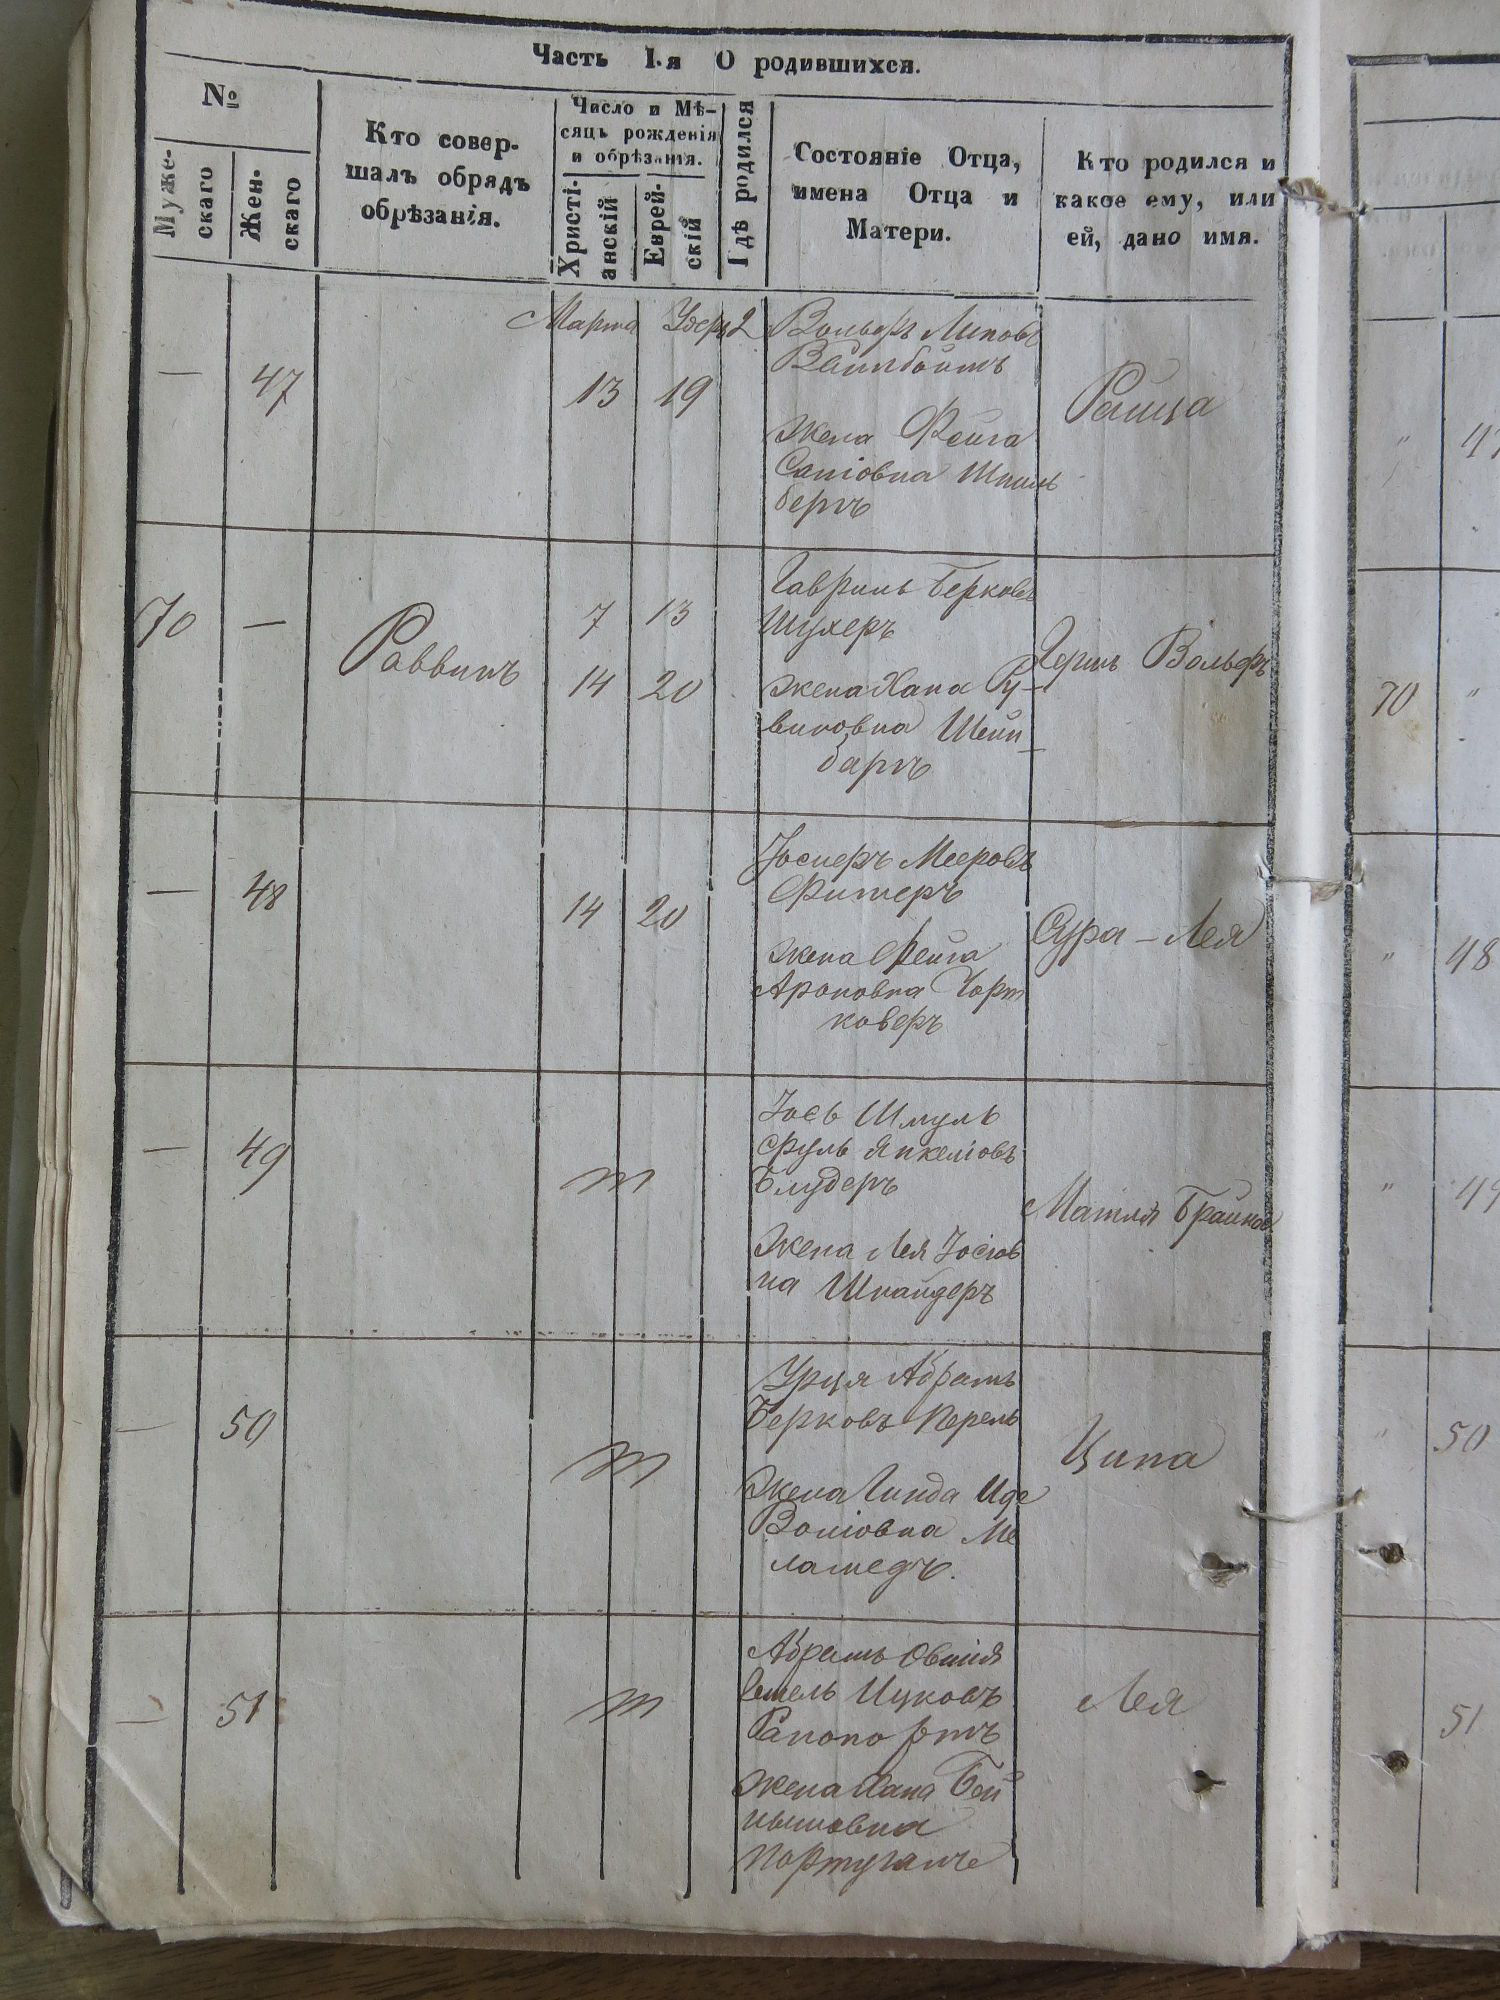 Часть I.я О родившихся.
№
Муже-
скаго
Жен-
скаго
Кто совер-
шалъ обрядъ
обрѣзанія.
Число и Мѣ-
сяцъ рожденія
и обрѣзанія.
Христі-
анскій
Еврей-
скій
Гдѣ родился
Состояніе Отца,
имена Отца и
Матери.
Кто родился и
какое ему, или
ей, дано имя.
— 47
Марта
13 19
Вольфъ Липовъ
Вайнбоимъ
жена Фейга
Шпиль
бергъ
Раица
70 —
Раввинъ
7 13
14 20
Гавриль Берковъ
Шухеръ
жена Хана Ру-
виновна Шейн-
баргъ
Гершъ Вольфъ
— 48
14 20
Іосиеръ Мееровъ
Фитеръ
жена Фейга
Ароновна Чорт
коверъ
Сура-Лея
— 49
Іось Шмуль
Сруль Янкеліовъ
Блудеръ
жена Лея Іосіов
на Шнайдеръ
Матля
— 50
Урця Абрамъ
Берковъ Перель
жена Гинда Иде
Воліовна Ме
ламедъ.
Ципа
— 51
Абрамъ Овшія
Ицковъ
Рапопортъ
жена Хана Бей
нышовна
Лея
" 47
70 "
" 48
" 49
" 50
51